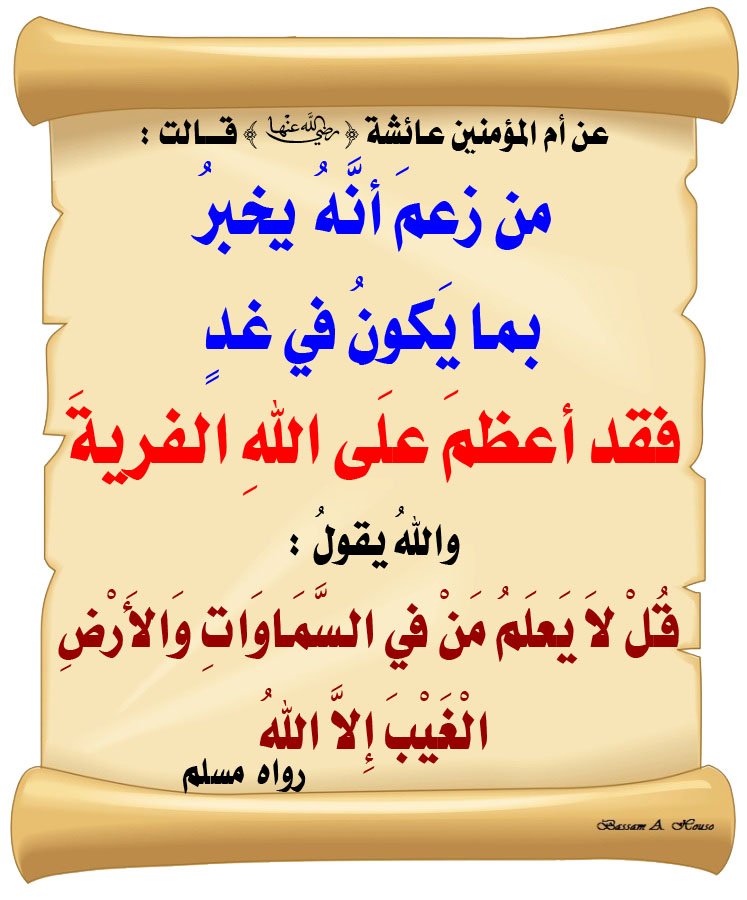 عن أم المؤمنين عائشة ﴿ رضي الله عنها ﴾ قـــالت :
من زعمَ أنَّهُ يخبرُ
بما يَكونُ في غدٍ
فقد أعظمَ علَى اللهِ الفريةَ
واللهُ يقولُ :
قُلْ لاَ يَعلَمُ مَنْ في السَّمَاوَاتِ وَالأَرْضِ
الْغَيْبَ إِلاَّ اللهُ
رواه مسلم
Bassam A. Houso